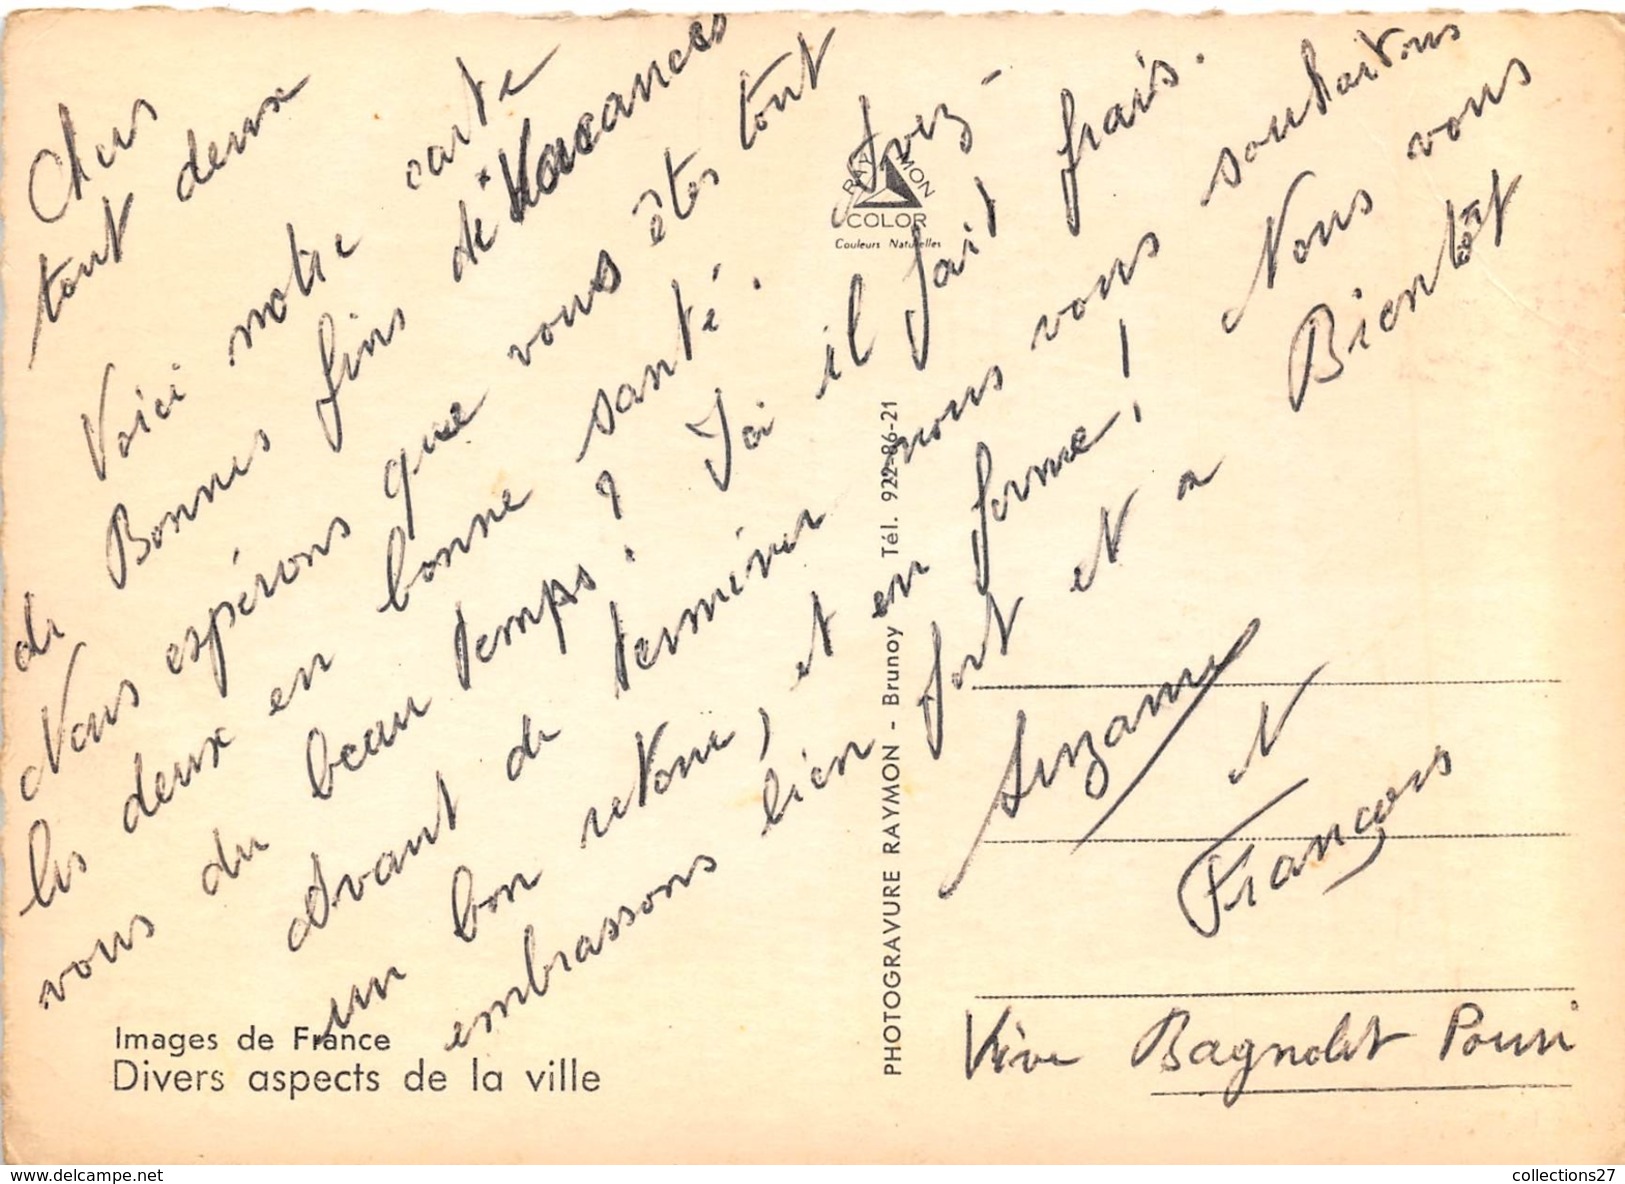 Chers
tout deux
Voici notre carte
de Bonnes fins de Vacances
Nous espérons que vous êtes tout
les deux en bonne santé. Avez-
vous du beau temps? Ici il fait frais.
Avant de terminer nous vous souhaitons
un bon retour, et en forme! Nous vous
embrassons bien fort et a Bientôt
Suzanne
et
François
Vive Bagnolet Pourri
RAYMON
COLOR
Couleurs Naturelles
PHOTOGRAVURE RAYMON - Brunoy Tél. 922-86-21
Images de France
Divers aspects de la ville
collections27